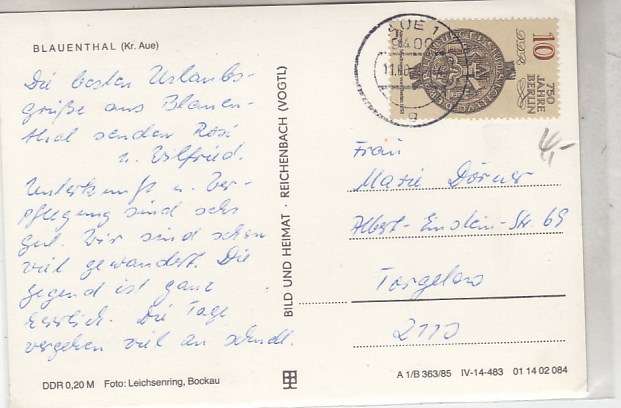 BLAUENTHAL (Kr. Aue)
Die besten Urlaubs-
grüße aus Blauen-
thal senden Rosi
u. Wilfried.
Unterkunft u. Ver-
pflegung sind sehr
gut. Wir sind schon
viel gewandert. Die
Gegend ist ganz
herrlich. Die Tage
vergehen viel zu schnell.
DDR 0,20 M Foto: Leichsenring, Bockau
BILD UND HEIMAT · REICHENBACH (VOGTL)
AUE 1
9400
11.
a
10
DDR
750
JAHRE
BERLIN
4,-
Frau
Marie Dörner
Albert-Einstein-Str. 69
Torgelow
2110
A 1/B 363/85 IV-14-483 01 14 02 084